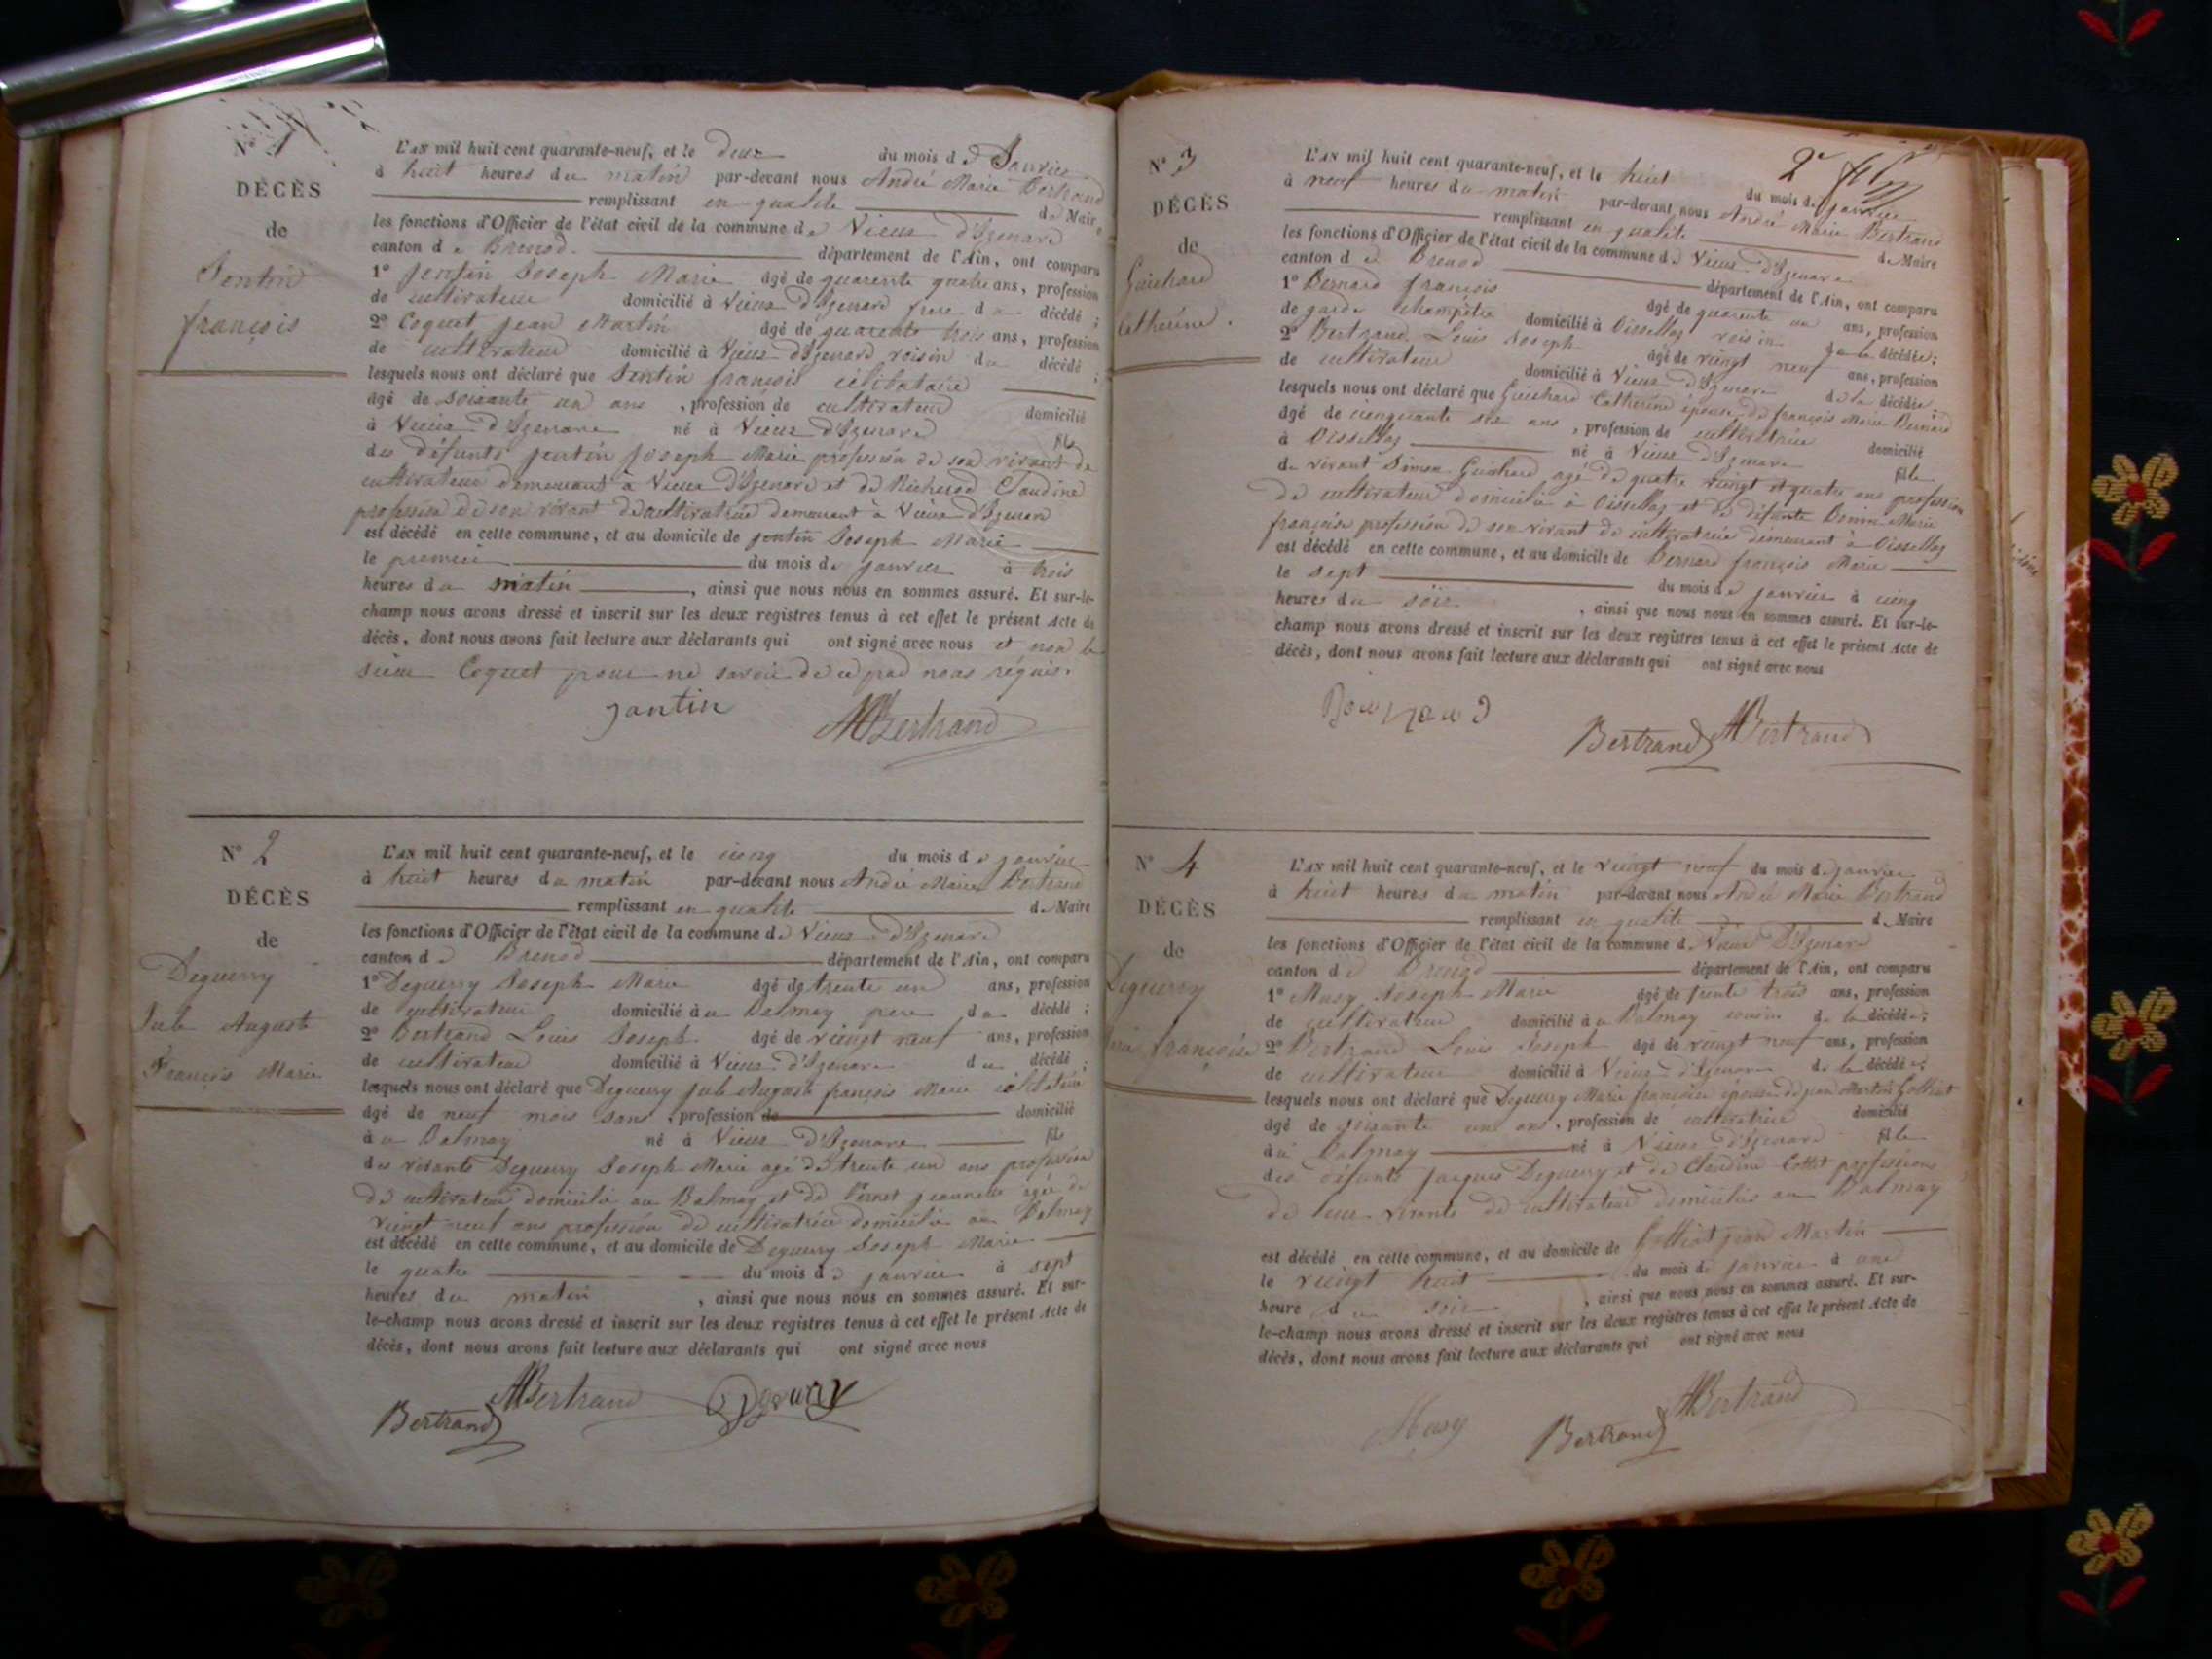 N° 1
DÉCÈS
de
Jentin
françois
L'AN mil huit cent quarante-neuf, et le deux du mois de Janvier
à huit heures du matin par-devant nous André Marie Bertrand
remplissant en qualité de Maire
les fonctions d'Officier de l'état civil de la commune de Vieux d'Izenave
canton de Brenod. département de l'Ain, ont comparu
1° Jentin Joseph Marie âgé de quarente quatre ans, profession
de cultivateur domicilié à Vieux d'Izenave frere du décédé ;
2° Coquet Jean Martin âgé de quarente trois ans, profession
de cultivateur domicilié à Vieux d'Izenave voisin du décédé ;
lesquels nous ont déclaré que Jentin françois célibataire
âgé de soixante un ans , profession de cultivateur domicilié
à Vieux d'Izenave né à Vieux d'Izenave fils
des défunts jentin joseph Marie profession de son vivant de
cultivateur demeurant à Vieux d'Izenave et de Richerod Claudine
profession de son vivant de cultivatrice demeurant à Vieux d'Izenave
est décédé en cette commune, et au domicile de jentin Joseph Marie
le premier du mois de janvier à trois
heures du matin , ainsi que nous nous en sommes assuré. Et sur-le-
champ nous avons dressé et inscrit sur les deux registres tenus à cet effet le présent Acte de
décès, dont nous avons fait lecture aux déclarants qui ont signé avec nous et non le
sieur Coquet pour ne savoir de ce par nous réquis.
jantin
AMBertrand
N° 2
DÉCÈS
de
Deguerry
Jule Auguste
François Marie
L'AN mil huit cent quarante-neuf, et le cinq du mois de janvier
à huit heures du matin par-devant nous André Marie Bertrand
remplissant en qualité de Maire
les fonctions d'Officier de l'état civil de la commune de Vieux d'Izenave
canton de Brenod département de l'Ain, ont comparu
1° Deguerry Joseph Marie âgé de trente un ans, profession
de cultivateur domicilié au Balmay pere du décédé ;
2° Bertrand Louis Joseph âgé de vingt neuf ans, profession
de cultivateur domicilié à Vieux d'Izenave du décédé ;
lesquels nous ont déclaré que Deguerry Jule Auguste françois Marie célibataire
âgé de neuf mois sans , profession de domicilié
à au Balmay né à Vieux d'Izenave fils
des vivants Deguerry Joseph Marie agé de trente un ans profession
de cultivateur domicilié au Balmay et de jeannette agée de
vingt neuf ans profession de cultivatrice domicilié au Balmay
est décédé en cette commune, et au domicile de Deguerry Joseph Marie
le quatre du mois de janvier à sept
heures du matin , ainsi que nous nous en sommes assuré. Et sur-
le-champ nous avons dressé et inscrit sur les deux registres tenus à cet effet le présent Acte de
décès, dont nous avons fait lecture aux déclarants qui ont signé avec nous
Bertrand AMBertrand
N° 3
DÉCÈS
de
Guichard
Catherine.
2e
L'AN mil huit cent quarante-neuf, et le huit du mois de janvier
à neuf heures du matin par-devant nous André Marie Bertrand
remplissant en qualité de Maire
les fonctions d'Officier de l'état civil de la commune de Vieux d'Izenave
canton de Brenod département de l'Ain, ont comparu
1° Bernard françois âgé de quarente un ans, profession
de garde champêtre domicilié à Oissellaz voisin de la décédée ;
2° Bertrand Louis Joseph âgé de vingt neuf ans, profession
de cultivateur domicilié à Vieux d'Izenave de la décédée ;
lesquels nous ont déclaré que Guichard Catherine épouse de françois Marie Bernard
âgé de cinquante six ans , profession de cultivatrice domicilié
à Oissellaz né à Vieux d'Izenave fille
de vivant Simon Guichard agé de quatre vingt et quatre ans profession
de cultivateur domicilié à Oissellaz et de défunte Marie
françoise profession de son vivant de cultivatrice demeurant à Oissellaz
est décédé en cette commune, et au domicile de Bernard françois Marie
le sept du mois de janvier à cinq
heures du soir , ainsi que nous nous en sommes assuré. Et sur-le-
champ nous avons dressé et inscrit sur les deux registres tenus à cet effet le présent Acte de
décès, dont nous avons fait lecture aux déclarants qui ont signé avec nous
Bertrand AMBertrand
N° 4
DÉCÈS
de
Deguerry
Marie françoise
L'AN mil huit cent quarante-neuf, et le vingt neuf du mois de janvier
à huit heures du matin par-devant nous André Marie Bertrand
remplissant en qualité de Maire
les fonctions d'Officier de l'état civil de la commune de Vieux d'Izenave
canton de Brenod département de l'Ain, ont comparu
1° Musy Joseph Marie âgé de trente trois ans, profession
de cultivateur domicilié au Balmay cousin de la décédée ;
2° Bertrand Louis Joseph âgé de vingt neuf ans, profession
de cultivateur domicilié à Vieux d'Izenave de la décédée ;
lesquels nous ont déclaré que Deguerry Marie françoise épouse de jean Martin Golliat
âgé de soixante un ans , profession de cultivatrice domicilié
au Balmay né à Vieux d'Izenave fille
des défunts jacques Deguerry et de Claudine Cottet professions
de leur vivants de cultivateur domiciliés au Balmay
est décédé en cette commune, et au domicile de Golliat jean Martin
le vingt huit du mois de janvier à une
heure du soir , ainsi que nous nous en sommes assuré. Et sur-
le-champ nous avons dressé et inscrit sur les deux registres tenus à cet effet le présent Acte de
décès, dont nous avons fait lecture aux déclarants qui ont signé avec nous
Musy Bertrand AMBertrand